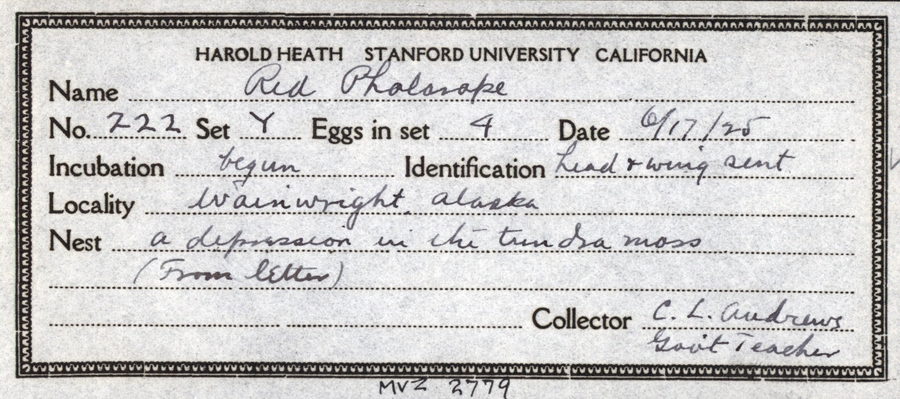 HAROLD HEATH STANFORD UNIVERSITY CALIFORNIA
Name Red Phalarope
No. 222 Set Y Eggs in set 4 Date 6/17/25
Incubation begun Identification head & wing sent
Locality Wainwright, Alaska
Nest a depression in the tundra moss
(From letter)
Collector C. L. Andrews
Gov't Teacher
MVZ 2779